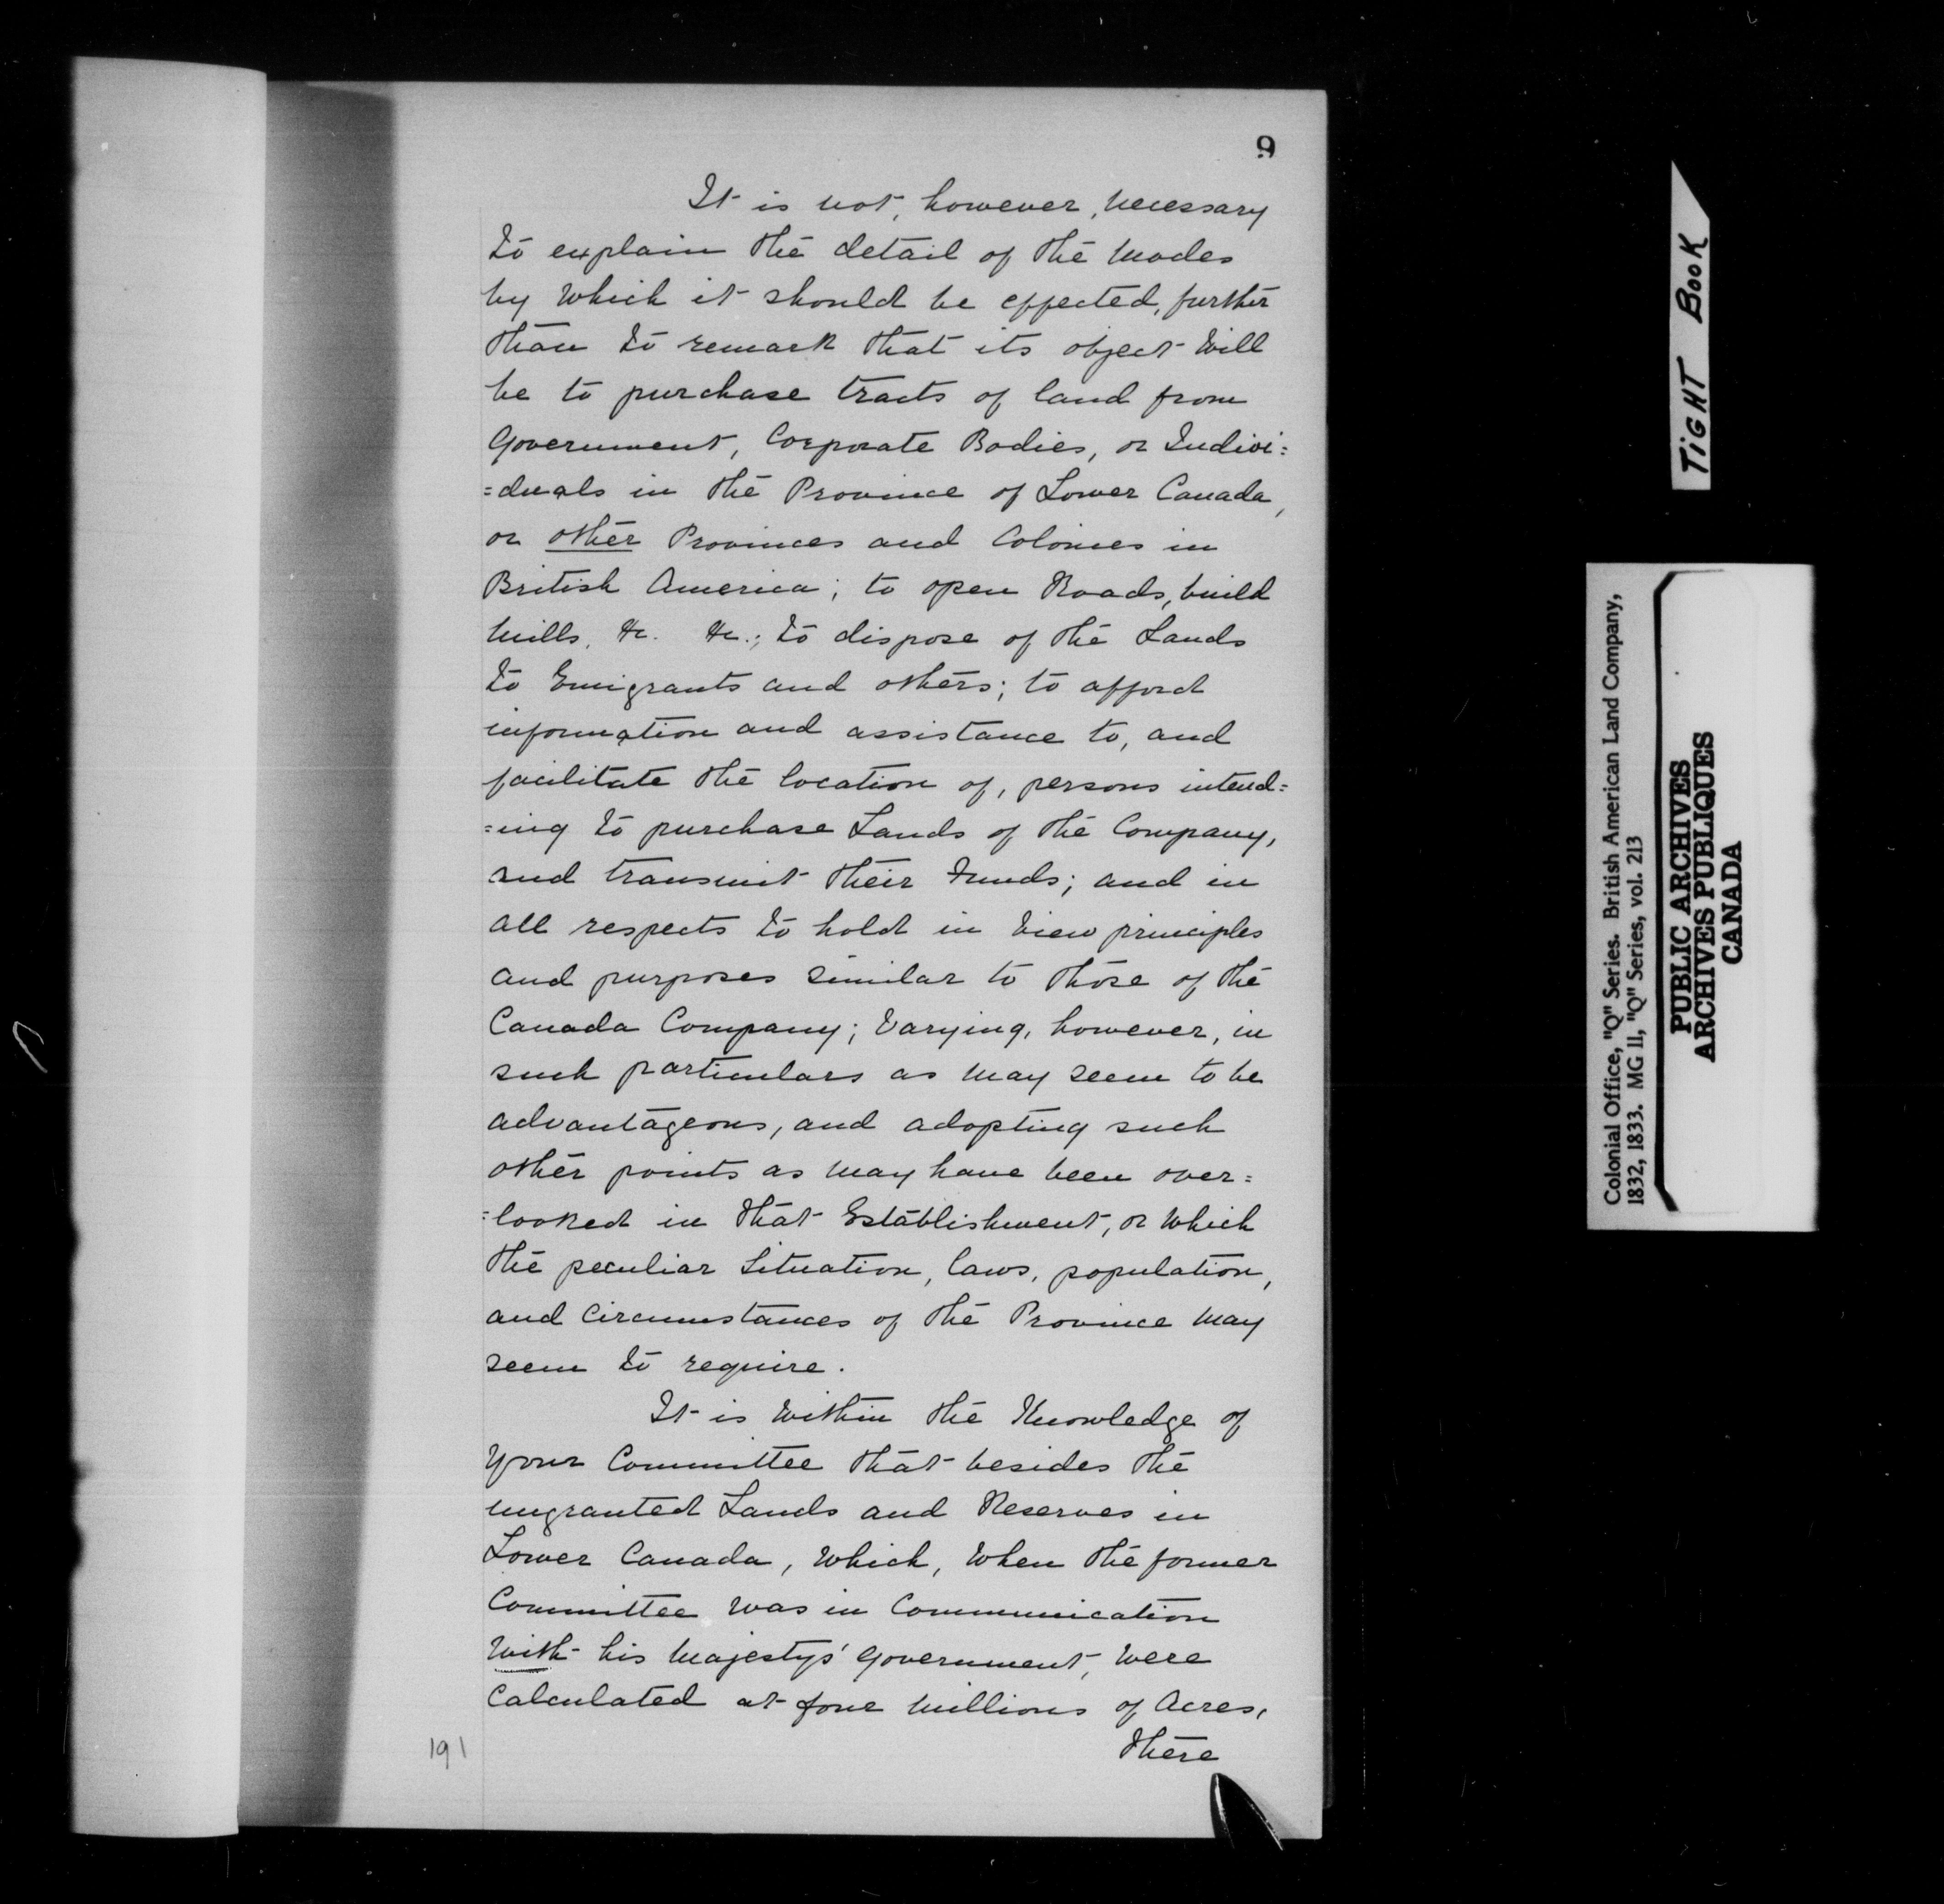 9
It is not, however, necessary
to explain the detail of the modes
by which it should be effected, further
than to remark that its object will
be to purchase tracts of land from
Government, Corporate Bodies, or Indivi=
=duals in the Province of Lower Canada,
or other Provinces and Colonies in
British America; to open Roads, build
Mills, &c. &c.; to dispose of the Lands
to Emigrants and others; to afford
information and assistance to, and
facilitate the location of, persons intend=
=ing to purchase Lands of the Company,
and transmit their Funds; and in
all respects to hold in view principles
and purposes similar to those of the
Canada Company; varying, however, in
such particulars as may seem to be
advantageous, and adopting such
other points as may have been over=
=looked in that Establishment, or which
the peculiar situation, laws, population,
and circumstances of the Province may
seem to require.
It is within the Knowledge of
your Committee that besides the
ungranted Lands and Reserves in
Lower Canada, which, when the former
Committee was in Communication
with his Majestys' Government, were
calculated at four millions of Acres,
there
191
TIGHT BOOK
Colonial Office, "Q" Series. British American Land Company,
1832, 1833. MG 11, "Q" Series, vol. 213
PUBLIC ARCHIVES
ARCHIVES PUBLIQUES
CANADA